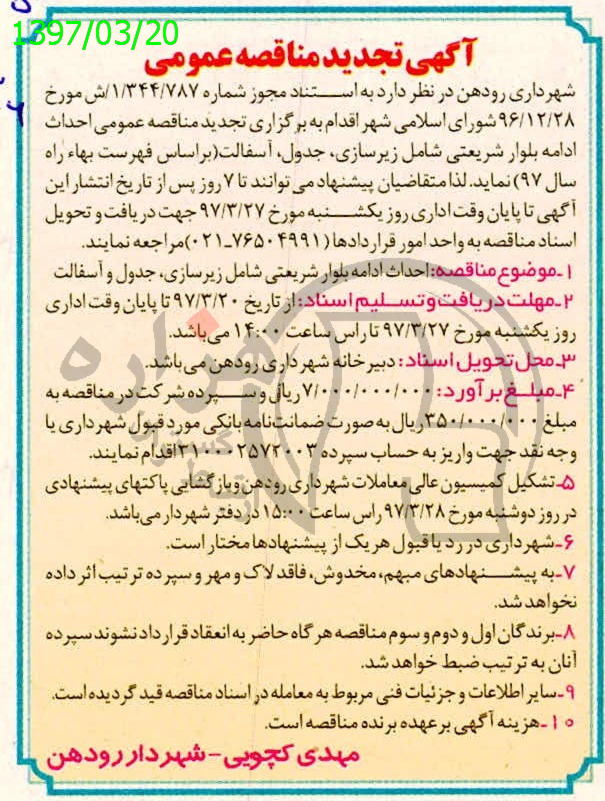 1397/03/20
آگهی تجدید مناقصه عمومی
شهرداری رودهن در نظر دارد به استناد مجوز شماره ۱/۳۴۴/۷۸۷/ش مورخ
۹۶/۱۲/۲۸ شورای اسلامی شهر اقدام به برگزاری تجدید مناقصه عمومی احداث
ادامه بلوار شریعتی شامل زیرسازی، جدول، آسفالت(براساس فهرست بهاء راه
سال ۹۷) نماید. لذا متقاضیان پیشنهاد می توانند تا ۷ روز پس از تاریخ انتشار این
آگهی تا پایان وقت اداری روز یکشنبه مورخ ۹۷/۳/۲۷ جهت دریافت و تحویل
اسناد مناقصه به واحد امور قراردادها (۷۶۵۰۴۹۹۱-۰۲۱) مراجعه نمایند.
۱-موضوع مناقصه: احداث ادامه بلوار شریعتی شامل زیرسازی، جدول و آسفالت
۲-مهلت دریافت و تسلیم اسناد: از تاریخ ۹۷/۳/۲۰ تا پایان وقت اداری
روز یکشنبه مورخ ۹۷/۳/۲۷ تا راس ساعت ۱۴:۰۰ می‌باشد.
۳-محل تحویل اسناد: دبیرخانه شهرداری رودهن می‌باشد.
۴-مبلغ برآورد: ۷/۰۰۰/۰۰۰/۰۰۰ ریال و سپرده شرکت در مناقصه به
مبلغ ۳۵۰/۰۰۰/۰۰۰ ریال به صورت ضمانت‌نامه بانکی مورد قبول شهرداری یا
وجه نقد جهت واریز به حساب سپرده ۳۱۰۰۰۰۲۵۷۲۰۰۳ اقدام نمایند.
۵-تشکیل کمیسیون عالی معاملات شهرداری رودهن و بازگشایی پاکتهای پیشنهادی
در روز دوشنبه مورخ ۹۷/۳/۲۸ راس ساعت ۱۵:۰۰ در دفتر شهردار می‌باشد.
۶-شهرداری در رد یا قبول هر یک از پیشنهادها مختار است.
۷-به پیشنهادهای مبهم، مخدوش، فاقد لاک و مهر و سپرده ترتیب اثر داده
نخواهد شد.
۸-برندگان اول و دوم و سوم مناقصه هرگاه حاضر به انعقاد قرارداد نشوند سپرده
آنان به ترتیب ضبط خواهد شد.
۹-سایر اطلاعات و جزئیات فنی مربوط به معامله در اسناد مناقصه قید گردیده است.
۱۰-هزینه آگهی بر عهده برنده مناقصه است.
مهدی کچویی - شهردار رودهن
هزاره